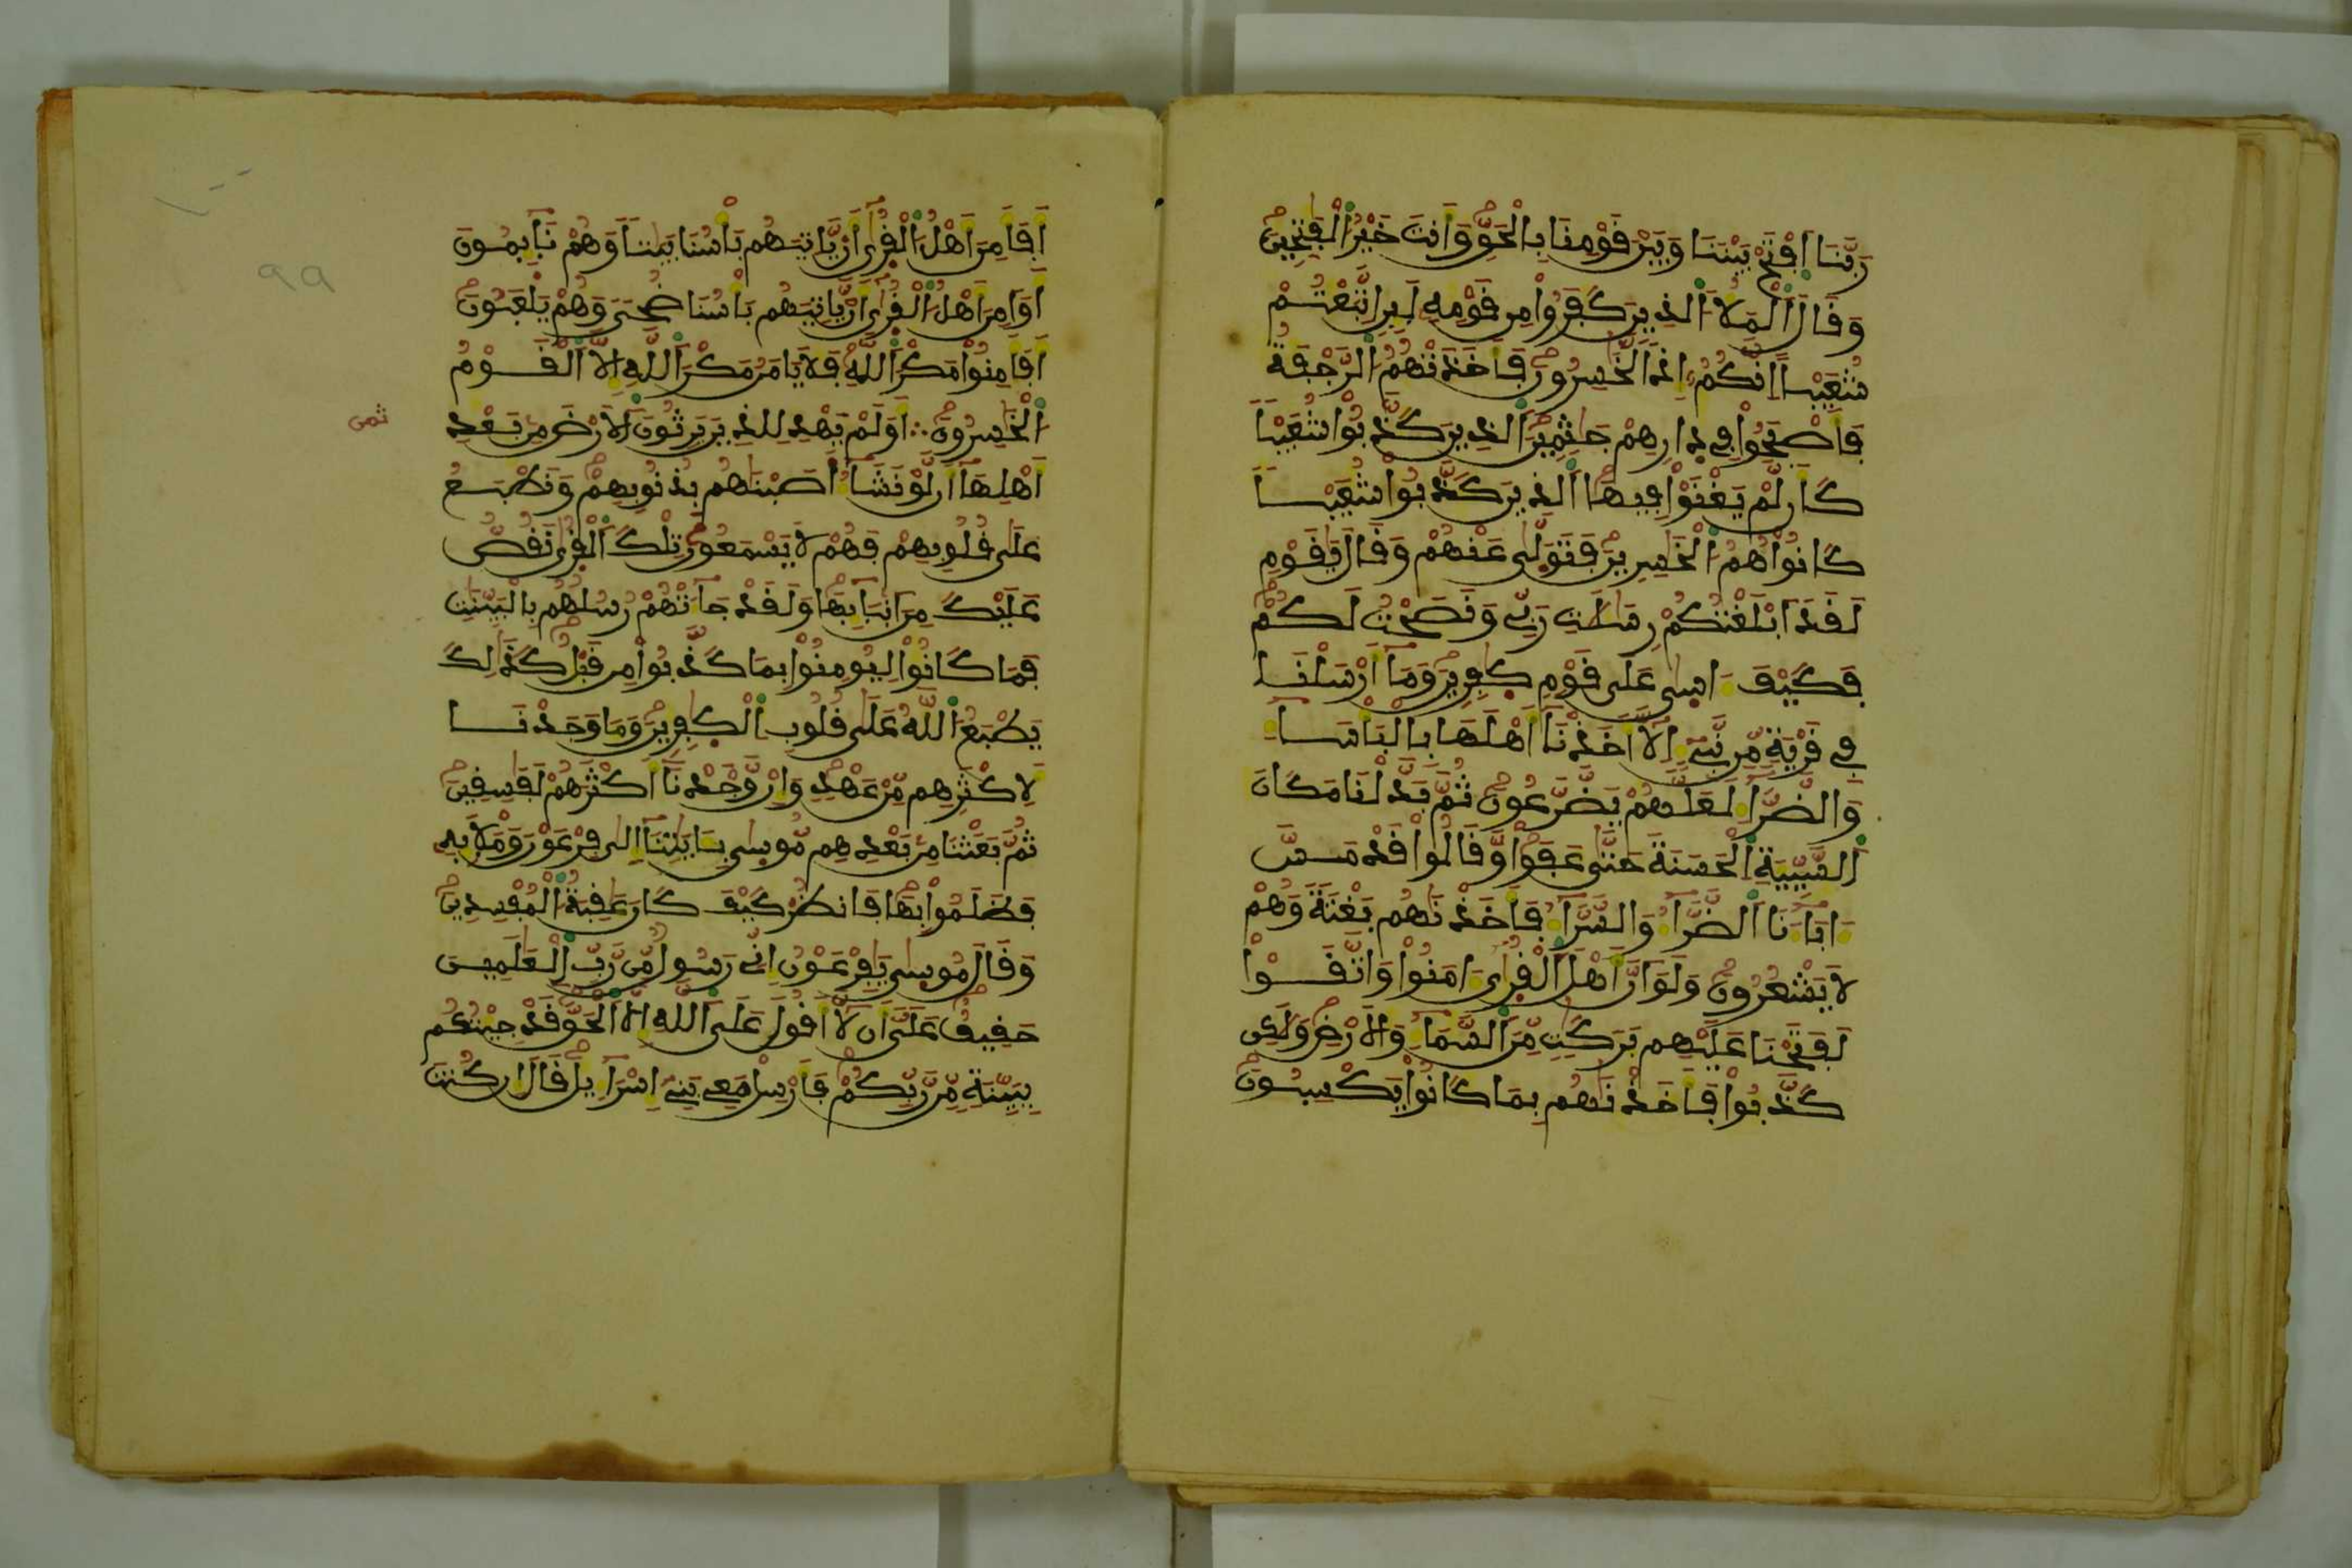 رَبَّنَا اَفْتَحْ بَيْنَنَا وَبَيْنَ قَوْمِنَا بِالْحَقِّ وَأَنتَ خَيْرُ الْفَٰتِحِينَ
وَقَالَ الْمَلَأُ الذِينَ كَفَرُواْ مِن قَوْمِهِ لَئِنِ اتَّبَعْتُمْ
شُعَيْباً اِنَّكُمُ إِذاً لَّخَٰسِرُونَ فَأَخَذَتْهُمُ الرَّجْفَةُ
فَأَصْبَحُواْ فِي دِارِهِمْ جَٰثِمِينَ الذِينَ كَذَّبُواْ شُعَيْباً
كَأَن لَّمْ يَغْنَوْاْ فِيهَا الذِينَ كَذَّبُواْ شُعَيْباً
كَانُواْ هُمُ الْخَٰسِرِينَ فَتَوَلَّىٰ عَنْهُمْ وَقَالَ يَٰقَوْمِ
لَقَدَ اَبْلَغْتُكُمْ رِسَٰلَٰتِ رَبِّي وَنَصَحْتُ لَكُمْ
فَكَيْفَ ءَاسِىٰ عَلَىٰ قَوْمٍ كَٰفِرِينَ وَمَا أَرْسَلْنَا
فِي قَرْيَةٍ مِّن نَّبِيءٍ اِلَّا أَخَذْنَا أَهْلَهَا بِالْبَأْسَاءِ
وَالضَّرَّاءِ لَعَلَّهُمْ يَضَّرَّعُونَ ثُمَّ بَدَّلْنَا مَكَانَ
اَلسَّيِّيَةِ الْحَسَنَةَ حَتَّىٰ عَفَواْ وَّقَالُواْ قَدْ مَسَّ
ءَابَاءَنَا الضَّرَّاءُ وَالسَّرَّاءُ فَأَخَذْنَٰهُم بَغْتَةً وَهُمْ
لَا يَشْعُرُونَ وَلَوَ اَنَّ أَهْلَ الْقُرَىٰ ءَامَنُواْ وَاتَّقَوْاْ
لَفَتَحْنَا عَلَيْهِم بَرَكَٰتٍ مِّنَ السَّمَاءِ وَالْأَرْضِ وَلَٰكِن
كَذَّبُواْ فَأَخَذْنَٰهُم بِمَا كَانُواْ يَكْسِبُونَ
اَفَأَمِنَ أَهْلُ الْقُرَىٰ أَنْ يَّأْتِيَهُم بَأْسُنَا بَيَٰتاً وَهُمْ نَائِمُونَ
اَوَاَمِنَ أَهْلُ الْقُرَىٰ أَنْ يَّأْتِيَهُم بَأْسُنَا ضُحىً وَهُمْ يَلْعَبُونَ
اَفَأَمِنُواْ مَكْرَ اللَّهِ فَلَا يَأْمَنُ مَكْرَ اللَّهِ إِلَّا الْقَوْمُ
الْخَٰسِرُونَ ∴ اَوَلَمْ يَهْدِ لِلذِينَ يَرِثُونَ الْأَرْضَ مِن بَعْدِ
ثمن
أَهْلِهَا أَن لَّوْ نَشَاءُ اَصَبْنَٰهُم بِذُنُوبِهِمْ وَنَطْبَعُ
عَلَىٰ قُلُوبِهِمْ فَهُمْ لَا يَسْمَعُونَ تِلْكَ الْقُرَىٰ نَقُصُّ
عَلَيْكَ مِنَ اَنبَائِهَا وَلَقَدْ جَاءَتْهُمْ رُسُلُهُم بِالْبَيِّنَٰتِ
فَمَا كَانُواْ لِيُومِنُواْ بِمَا كَذَّبُواْ مِن قَبْلُ كَذَٰلِكَ
يَطْبَعُ اللَّهُ عَلَىٰ قُلُوبِ الْكَٰفِرِينَ وَمَا وَجَدْنَا
لِأَكْثَرِهِم مِّنْ عَهْدٍ وَإِنْ وَّجَدْنَا أَكْثَرَهُمْ لَفَٰسِقِينَ
ثُمَّ بَعَثْنَا مِن بَعْدِهِم مُّوسِىٰ بِـَٔايَٰتِنَا إِلَىٰ فِرْعَوْنَ وَمَلَإِيْهِ
فَظَلَمُواْ بِهَا فَانظُرْ كَيْفَ كَانَ عَٰقِبَةُ الْمُفْسِدِينَ
وَقَالَ مُوسِىٰ يَٰفِرْعَوْنُ إِنِّي رَسُولٌ مِّن رَّبِّ الْعَٰلَمِينَ
حَقِيقٌ عَلَيَّ أَن لَّا أَقُولَ عَلَى اللَّهِ إِلَّا الْحَقَّ قَدْ جِئْتُكُم
بِبَيِّنَةٍ مِّن رَّبِّكُمْ فَأَرْسِلْ مَعِي بَنِي إِسْرَاءِيلَ قَالَ إِن كُنتَ
٩٩